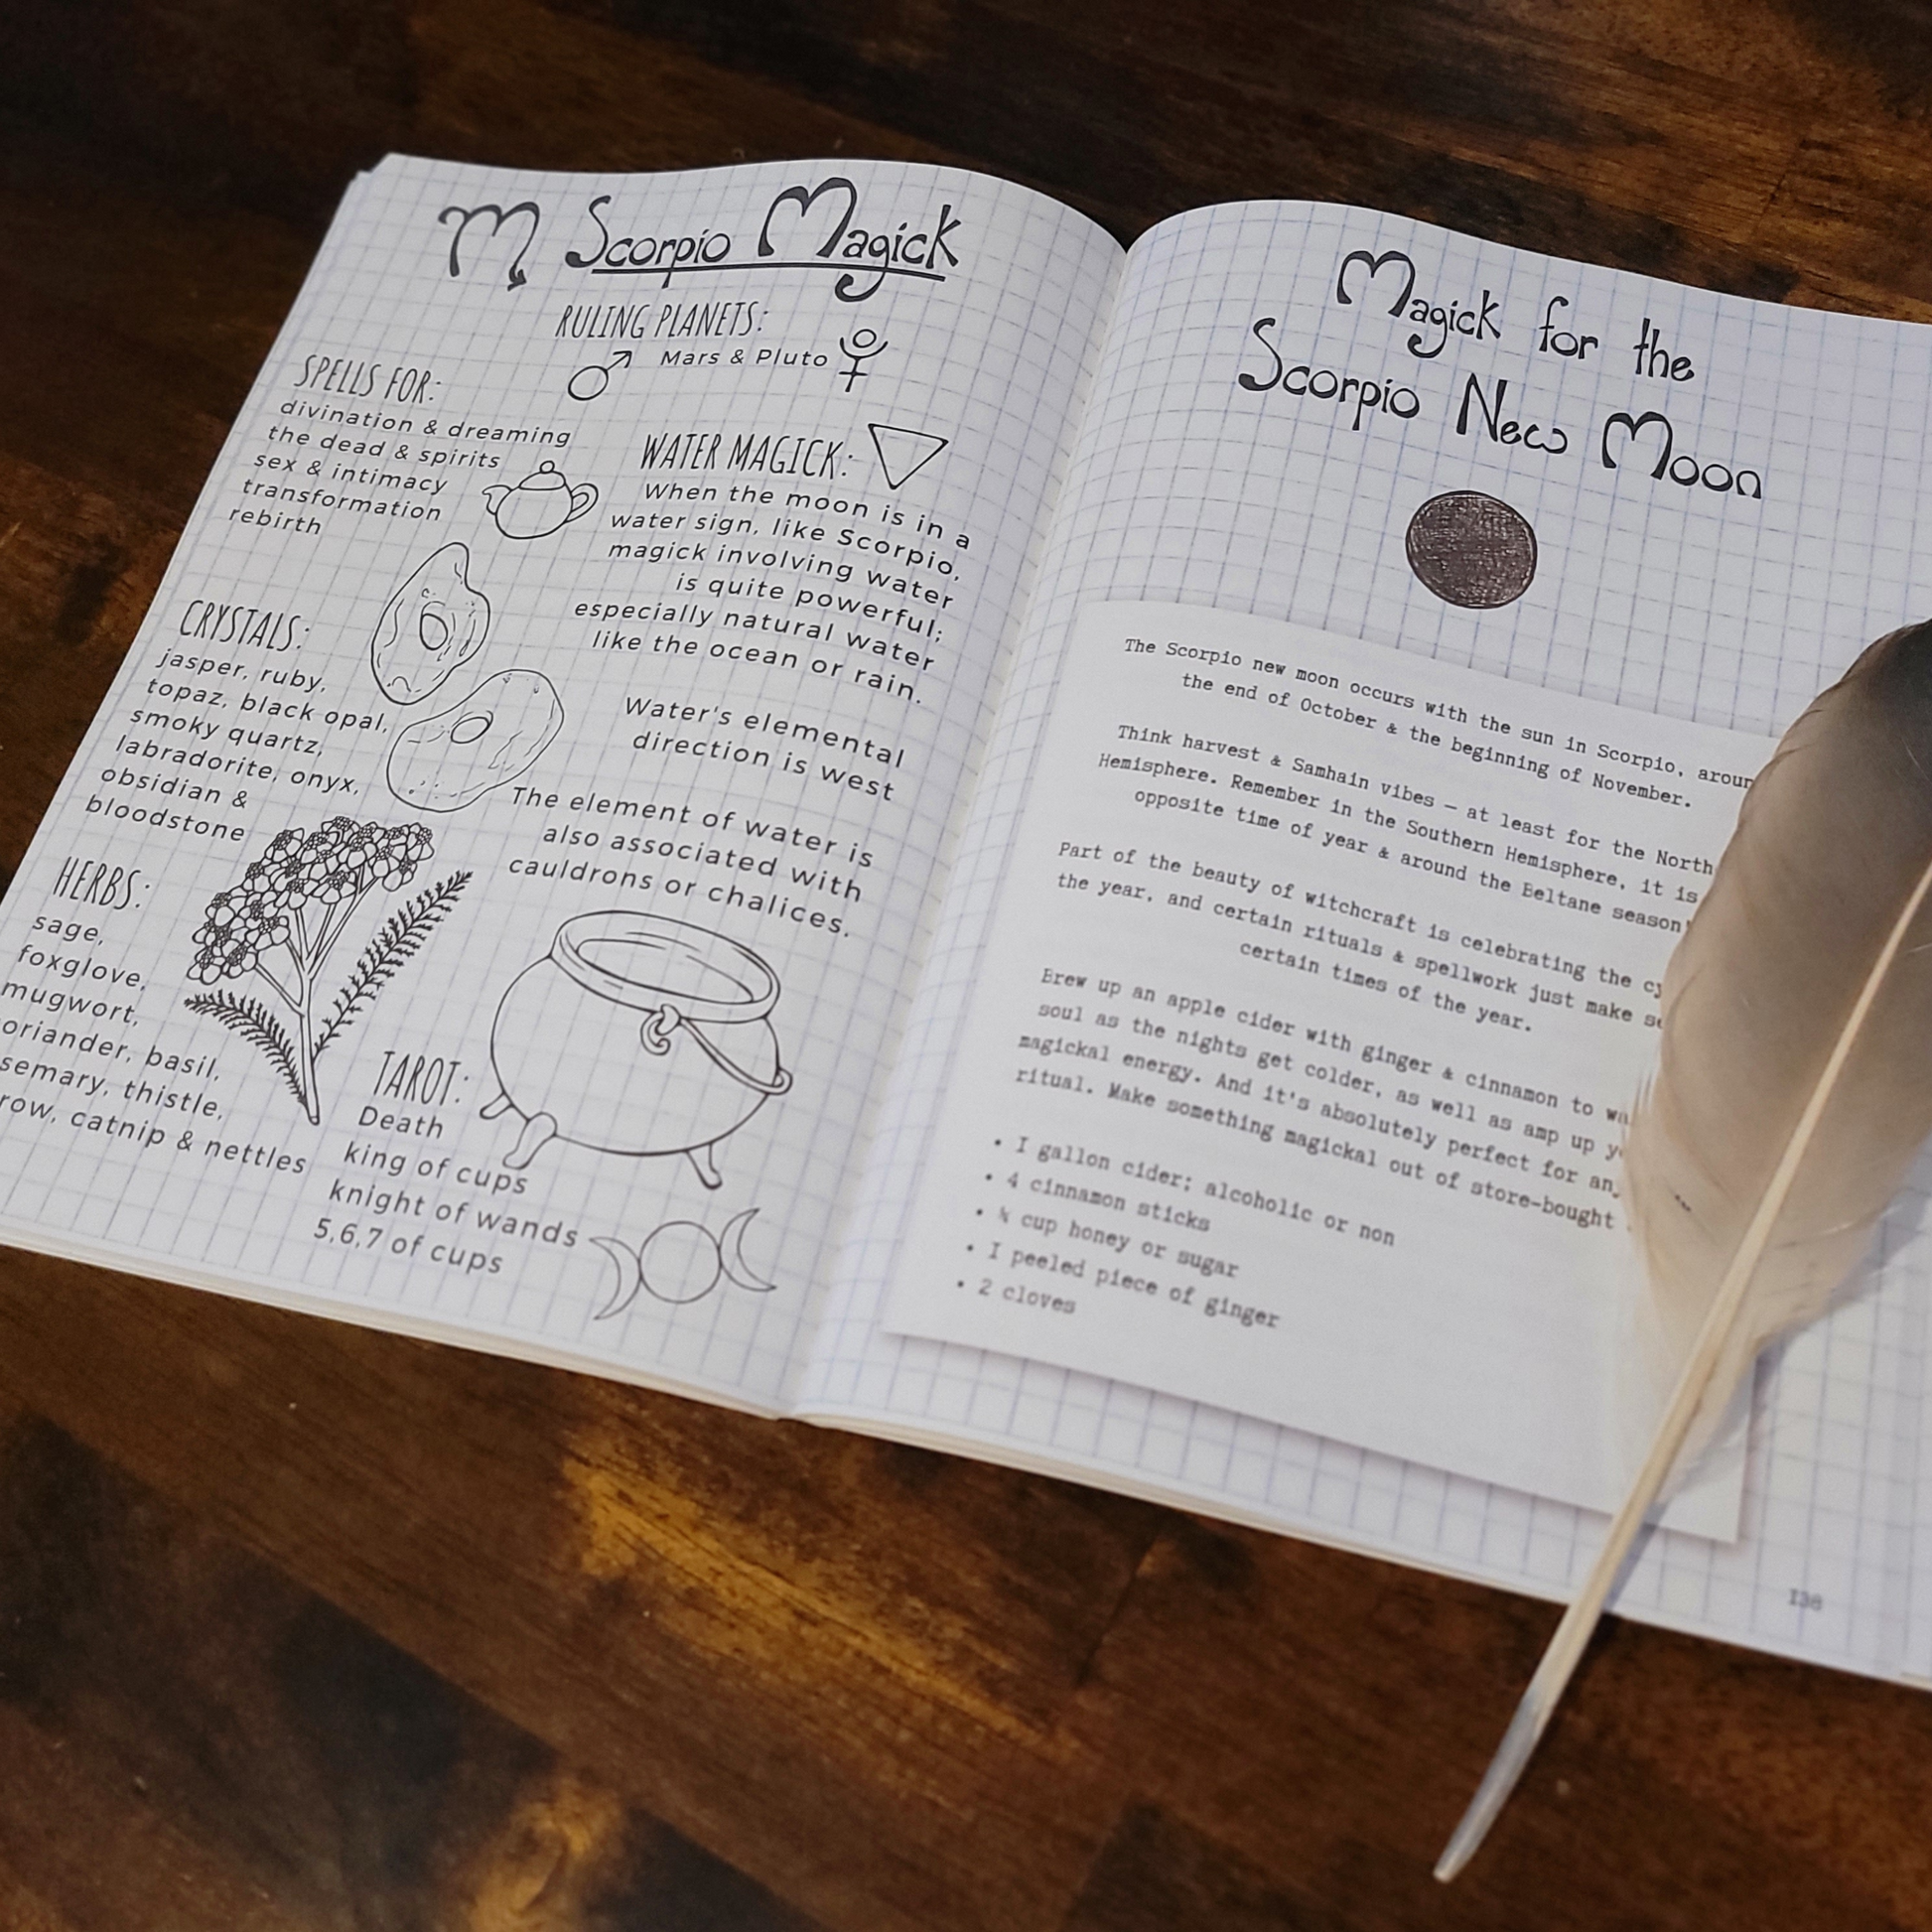 Scorpio Magick
RULING PLANETS:
Mars & Pluto
SPELLS FOR:
divination & dreaming
the dead & spirits
sex & intimacy
transformation
rebirth
CRYSTALS:
jasper, ruby,
topaz, black opal,
smoky quartz,
labradorite, onyx,
obsidian &
bloodstone
HERBS:
sage,
foxglove,
mugwort,
oriander, basil,
semary, thistle,
row, catnip & nettles
WATER MAGICK:
When the moon is in a
water sign, like Scorpio,
magick involving water
is quite powerful;
especially natural water
like the ocean or rain.
Water's elemental
direction is west
The element of water is
also associated with
cauldrons or chalices.
TAROT:
Death
king of cups
knight of wands
5,6,7 of cups
Magick for the
Scorpio New Moon
The Scorpio new moon occurs with the sun in Scorpio, aroun
the end of October & the beginning of November.
Think harvest & Samhain vibes — at least for the North
Hemisphere. Remember in the Southern Hemisphere, it is
opposite time of year & around the Beltane season!
Part of the beauty of witchcraft is celebrating the
the year, and certain rituals & spellwork just make
certain times of the year.
Brew up an apple cider with ginger & cinnamon to
soul as the nights get colder, as well as amp up
magickal energy. And it's absolutely perfect for
ritual. Make something magickal out of store-bought
• I gallon cider; alcoholic or non
• 4 cinnamon sticks
• cup honey or sugar
• I peeled piece of ginger
• 2 cloves
138